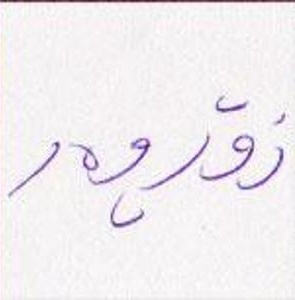 زۆڕوەر